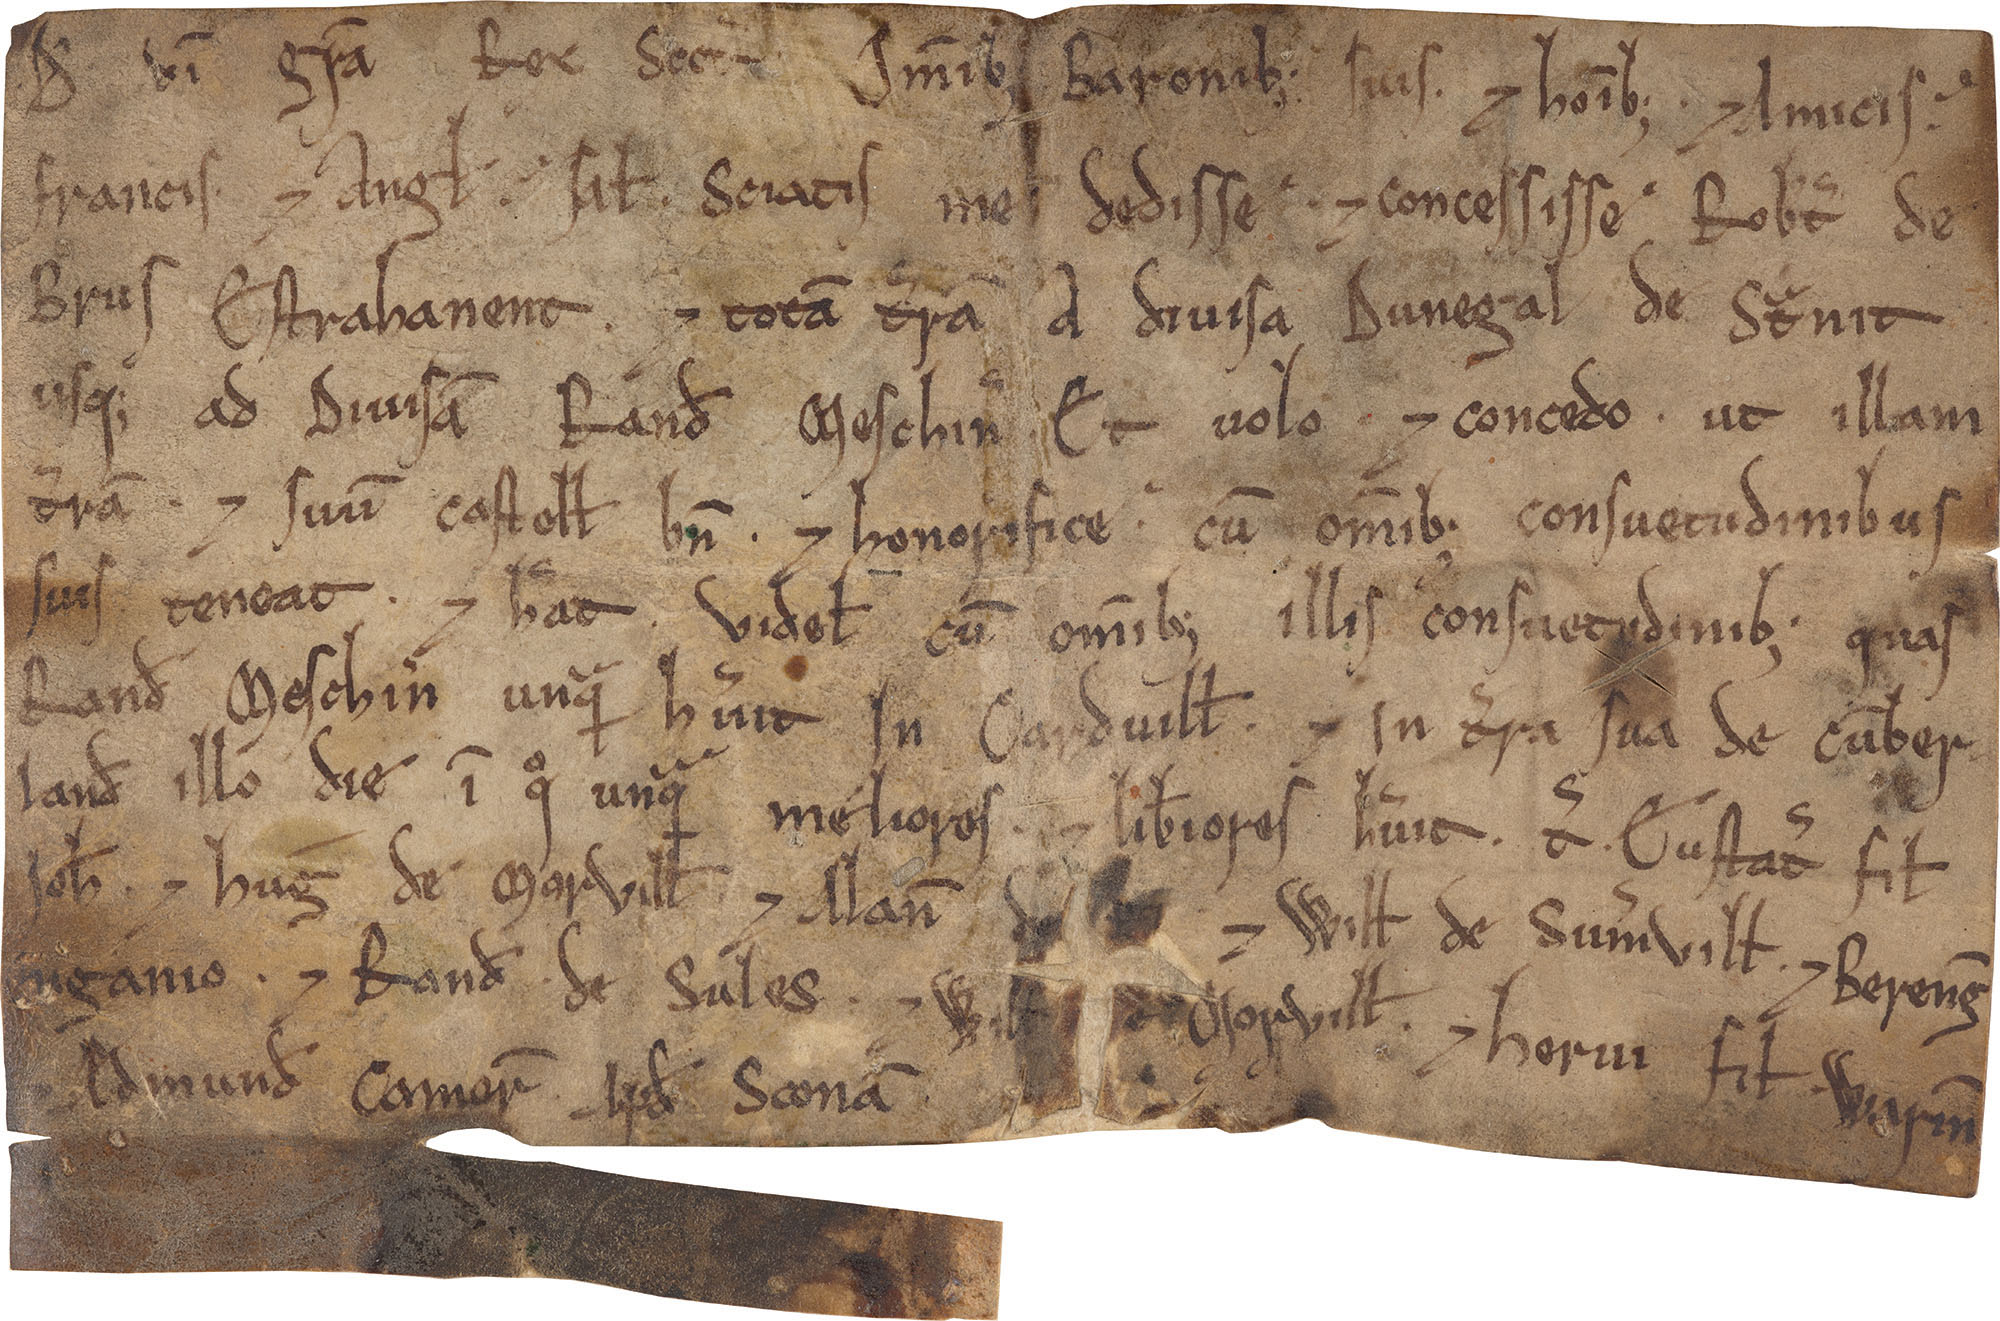 D di gr̄a Rex Scott· Om̄ib; Baronib; suis · ⁊ hōib; · ⁊ Amicis ·
francis · ⁊ Angł · sał · Sciatis me dedisse · ⁊ concessisse Robt̄ de
Brus Estrahanent · ⁊ totā t̄rā A diuisa Dunegal de St̄nit
usq; ad Diuisā Rand̄ Meschin̄ Et uolo · ⁊ concedo · ut illam
t̄rā · ⁊ suū castellł bn̄ · ⁊ honorifice · cū om̄ib; consuetudinibus
suis teneat · ⁊ h̄at · videł cū om̄ib; illis consuetudinib; quas
Rand̄ Meschin̄ unq̄ h̄uit In Carduillł · ⁊ In t̄ra sua de cūber
land̄ illo die ī qo unq̄ meliores · ⁊ lib̄iores h̄uit · t̄ · Eustat̄ fił
Ioh̄ · ⁊ huḡ de Morvillł ⁊ Alan̄ de ⁊ Willł de Sum̄villł · ⁊ Berenḡ
engaino · ⁊ Rand̄ de Sules · ⁊ Willł de Morvillł · ⁊ herui fił Warin̄
⁊ Ædmund̄ Camer̄ · Apd̄ Sconā ·